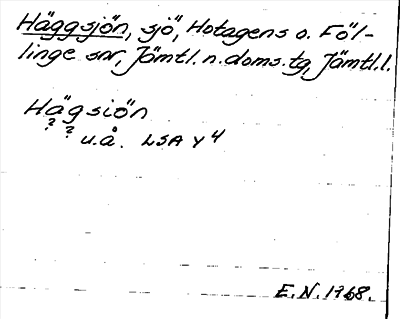 Häggsjön, sjö, Hotagens o. Föl-
linge snr, Jämtl. n. doms. tg, Jämtl. l.
Hägsiön
? ?
u.å. LSA Y 4
E.N. 1968.